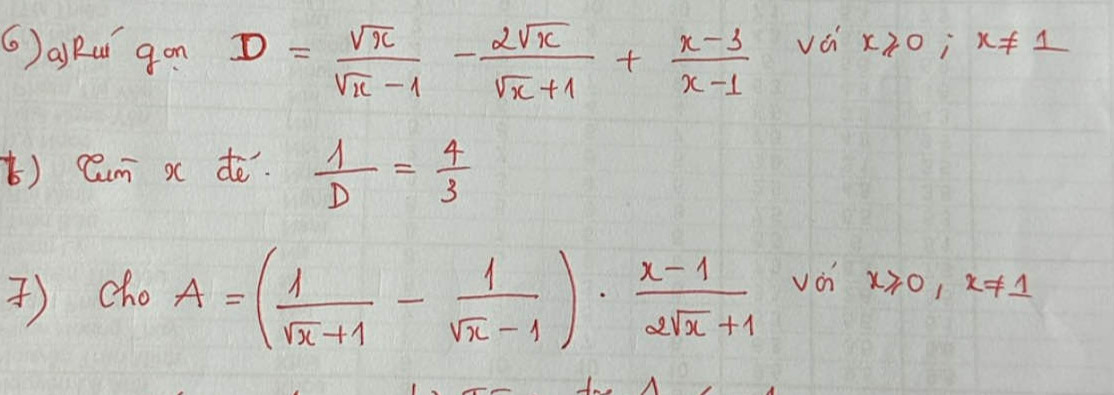 6) a) Rút gọn D = √x/(√x - 1) - 2√x/(√x + 1) + (x - 3)/(x - 1) với x ≥ 0 ; x ≠ 1
b) Tìm x để. 1/D = 4/3
7) Cho A = (1/(√x + 1) - 1/(√x - 1)) . (x - 1)/(2√x + 1) với x ≥ 0, x ≠ 1